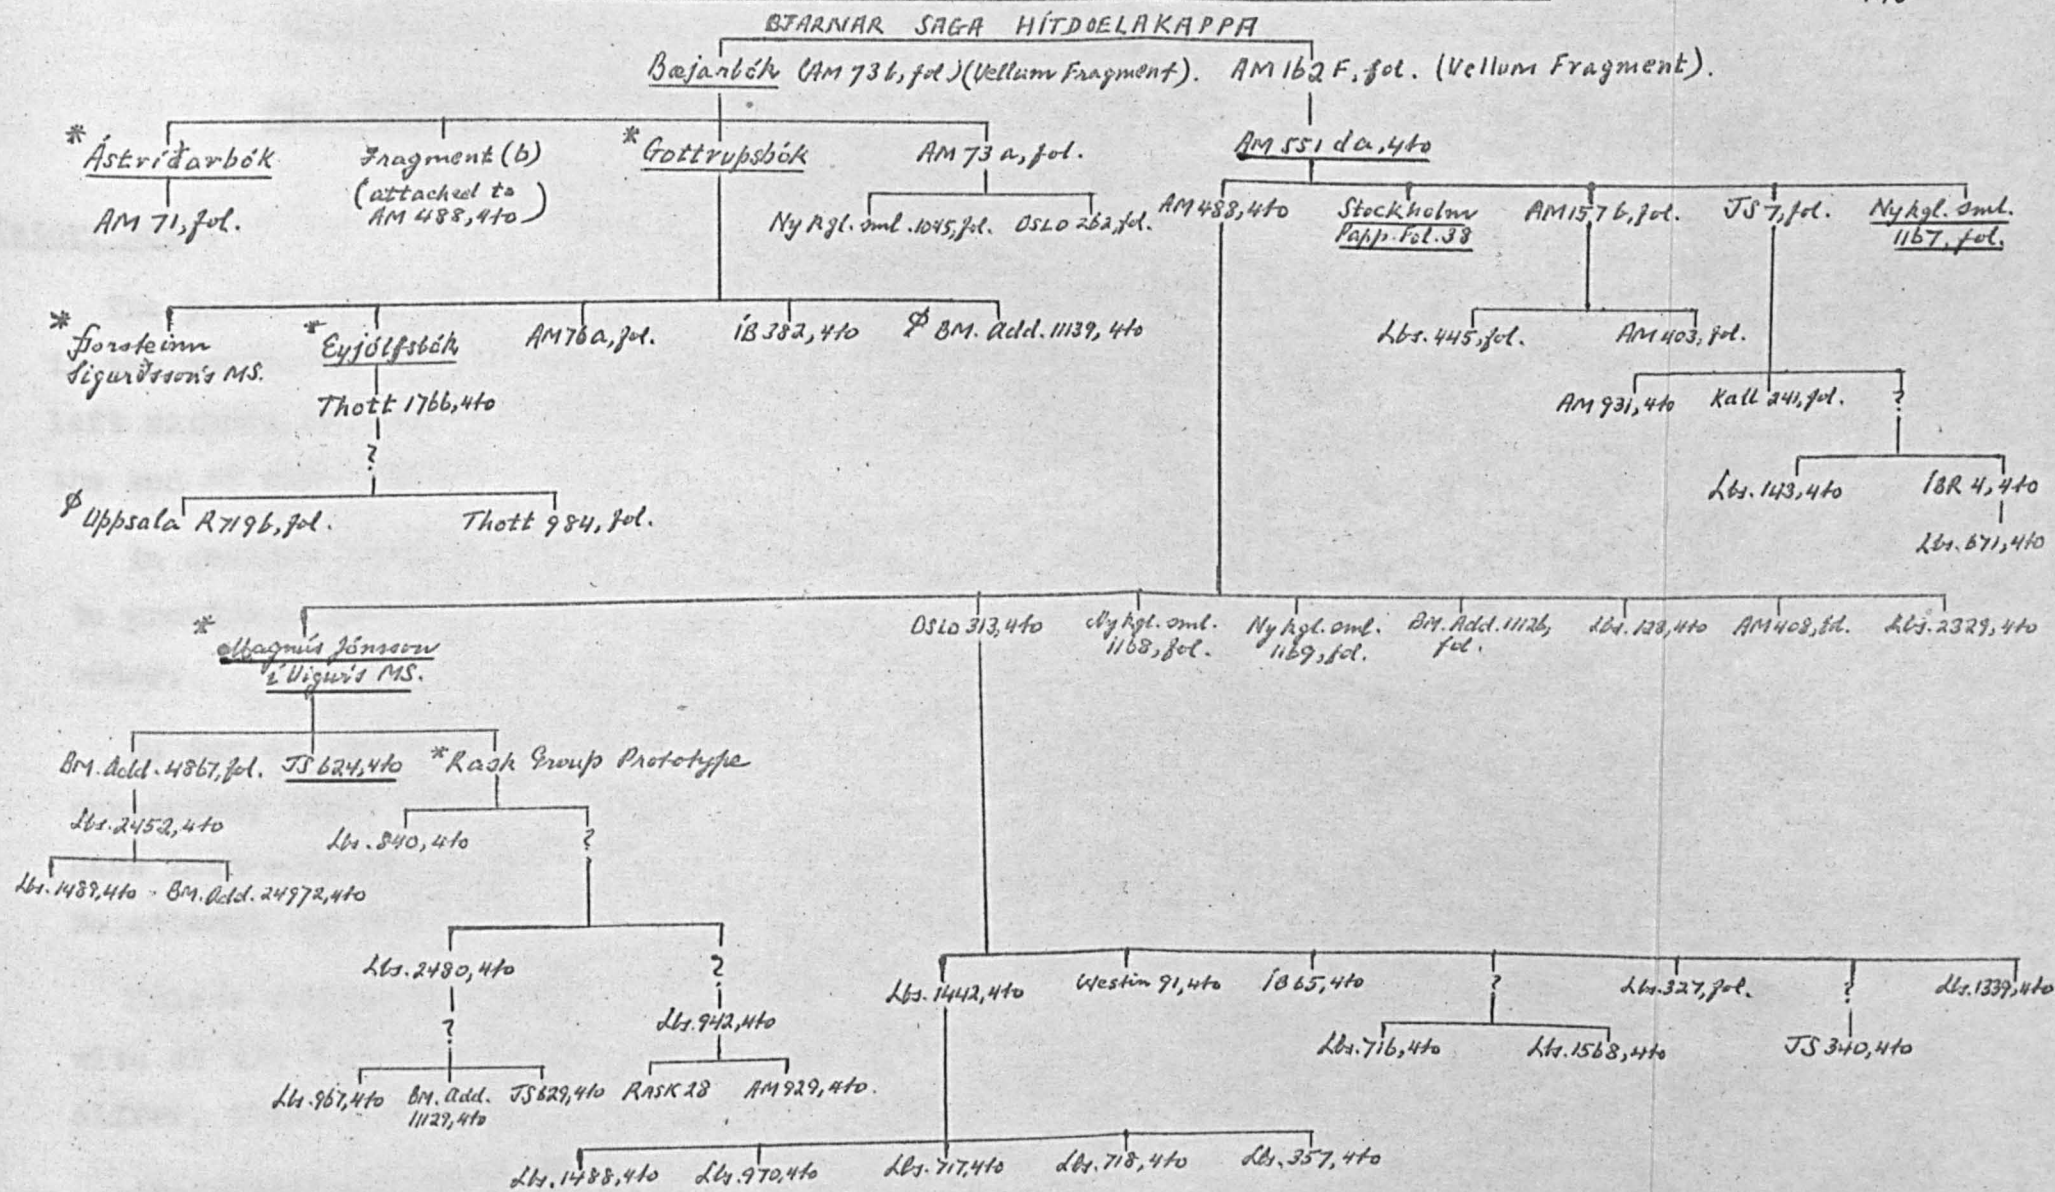 BJARNAR SAGA HÍTDOELAKAPPA
Bæjarbók (AM 73 b, fol.) (Vellum Fragment). AM 162 F, fol. (Vellum Fragment).
* Ástríðarbók
Fragment (b)
(attached to
AM 488, 4to)
* Gottrupsbók
AM 73 a, fol.
AM 551 d a, 4to
AM 71, fol.
Ny kgl. sml. 1045, fol.
OSLO 262, fol.
AM 488, 4to
Stockholm
Papp. Fol. 38
AM 157 b, fol.
JS 7, fol.
Ny kgl. sml.
1167, fol.
* Þorsteinn
Sigurðsson's MS.
* Eyjólfsbók
AM 76 a, fol.
ÍB 382, 4to
Ø BM. Add. 11139, 4to
Lbs. 445, fol.
AM 403, fol.
Thott 1766, 4to
AM 931, 4to
Kall 241, fol.
?
?
Lbs. 143, 4to
ÍBR 4, 4to
Ø Uppsala R 719 b, fol.
Thott 984, fol.
Lbs. 671, 4to
* Magnús Jónsson
í Vigur's MS.
OSLO 313, 4to
Ny kgl. sml.
1168, fol.
Ny kgl. sml.
1169, fol.
BM. Add. 11126,
fol.
Lbs. 128, 4to
AM 408, fol.
Lbs. 2329, 4to
BM. Add. 4867, fol.
JS 624, 4to
* Rask Group Prototype
Lbs. 2452, 4to
Lbs. 840, 4to
?
Lbs. 1489, 4to
BM. Add. 24972, 4to
Lbs. 2480, 4to
?
Lbs. 1442, 4to
Westin 91, 4to
ÍB 65, 4to
?
Lbs. 327, fol.
?
Lbs. 1339, 4to
?
Lbs. 942, 4to
Lbs. 716, 4to
Lbs. 1568, 4to
JS 340, 4to
Lbs. 967, 4to
BM. Add.
11129, 4to
JS 629, 4to
RASK 28
AM 929, 4to.
Lbs. 1488, 4to
Lbs. 970, 4to
Lbs. 717, 4to
Lbs. 718, 4to
Lbs. 357, 4to